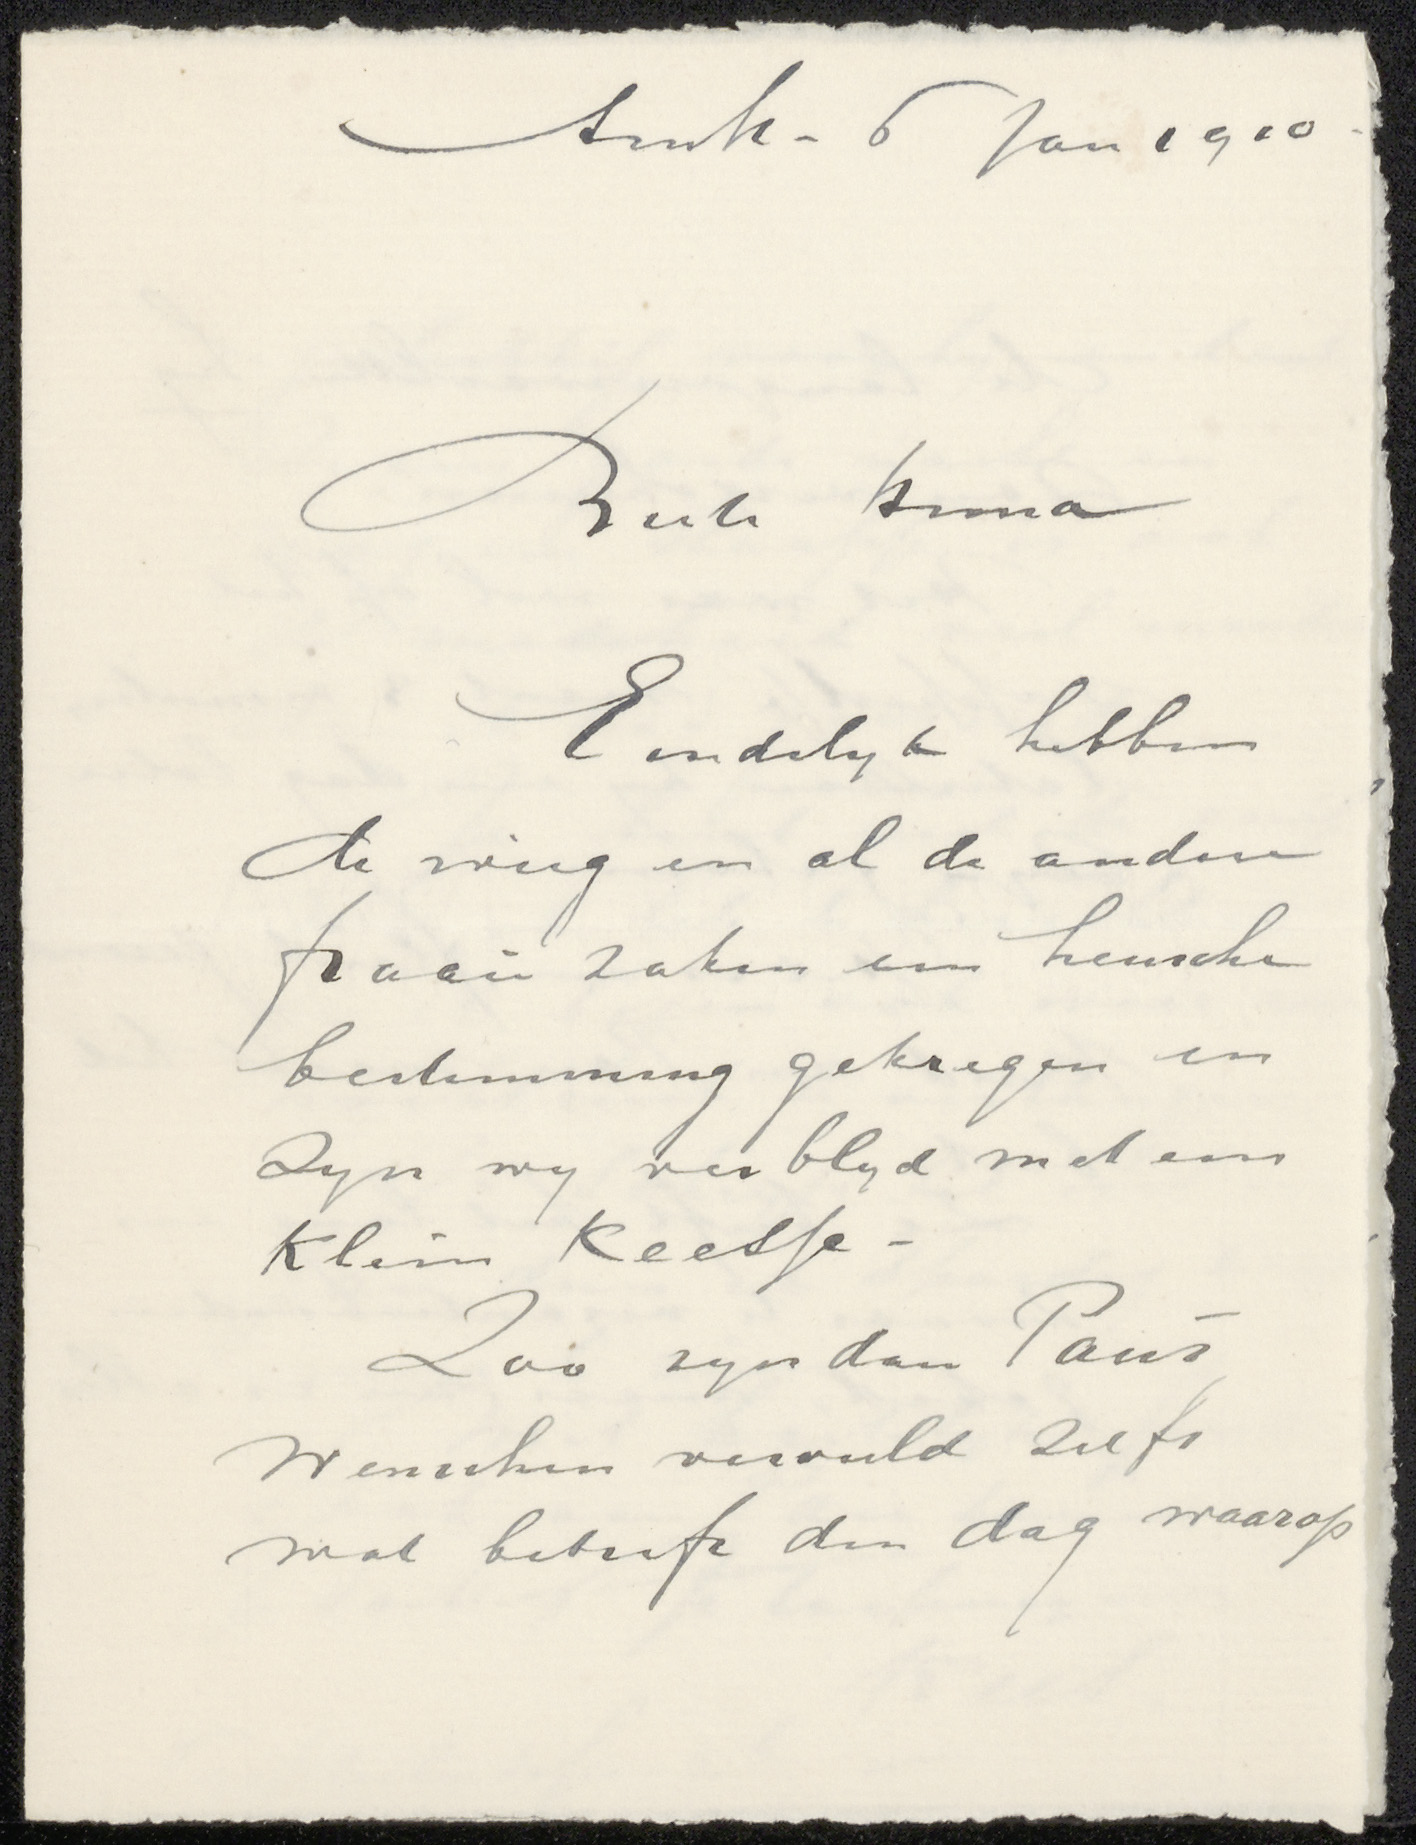 6 Jan 1910 -
Beste Anna
Eindelyk hebben
de wieg en al de andere
fraaie zaken een heusche
bestemming gekregen en
zyn wy verblyd met een
klein Keesje -
Zoo zyn dan Paus
wenschen vervuld zelfs
wat betreft den dag waarop